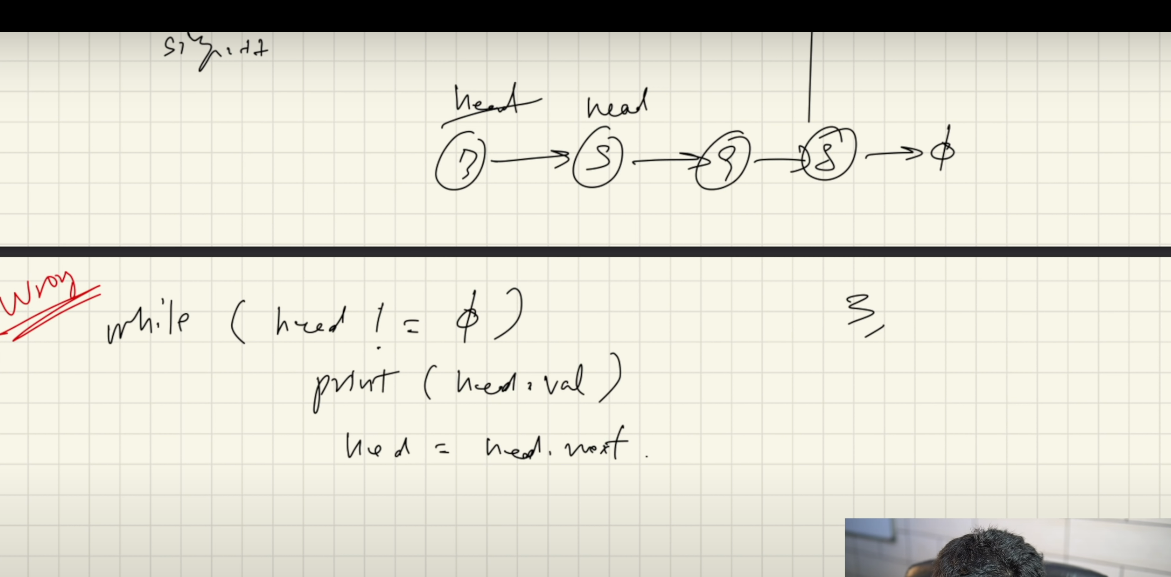 head head
3 → 5 → 9 → 8 → φ
Wrong
while ( head ! = φ ) 3,
print ( head.val )
head = head.next.